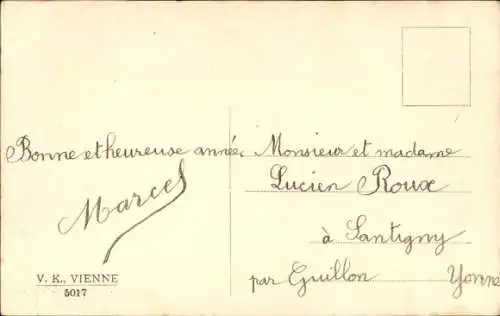 Bonne et heureuse année
Marcel
V. K., VIENNE
5017
Monsieur et madame
Lucien Roux
à Santigny
par Guillon Yonne